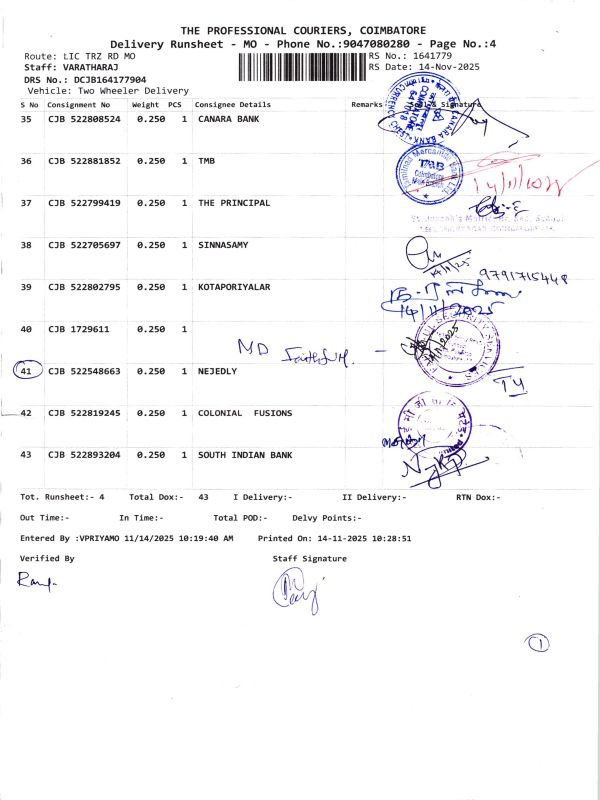 THE PROFESSIONAL COURIERS, COIMBATORE
Delivery Runsheet - MO - Phone No.:9047080280 - Page No.:4
Route: LIC TRZ RD MO RS No.: 1641779
Staff: VARATHARAJ RS Date: 14-Nov-2025
DRS No.: DCJB164177904
Vehicle: Two Wheeler Delivery
S No Consignment No Weight PCS Consignee Details Remarks Seal & Signature
35 CJB 522808524 0.250 1 CANARA BANK
36 CJB 522881852 0.250 1 TMB
TMB
14/11/2025
37 CJB 522799419 0.250 1 THE PRINCIPAL
38 CJB 522705697 0.250 1 SINNASAMY
14/11/25
9791715448
39 CJB 522802795 0.250 1 KOTAPORIYALAR
14/11/2025
40 CJB 1729611 0.250 1
MD
41 CJB 522548663 0.250 1 NEJEDLY
42 CJB 522819245 0.250 1 COLONIAL FUSIONS
43 CJB 522893204 0.250 1 SOUTH INDIAN BANK
Tot. Runsheet:- 4 Total Dox:- 43 I Delivery:- II Delivery:- RTN Dox:-
Out Time:- In Time:- Total POD:- Delvy Points:-
Entered By :VPRIYAMO 11/14/2025 10:19:40 AM Printed On: 14-11-2025 10:28:51
Verified By Staff Signature
1